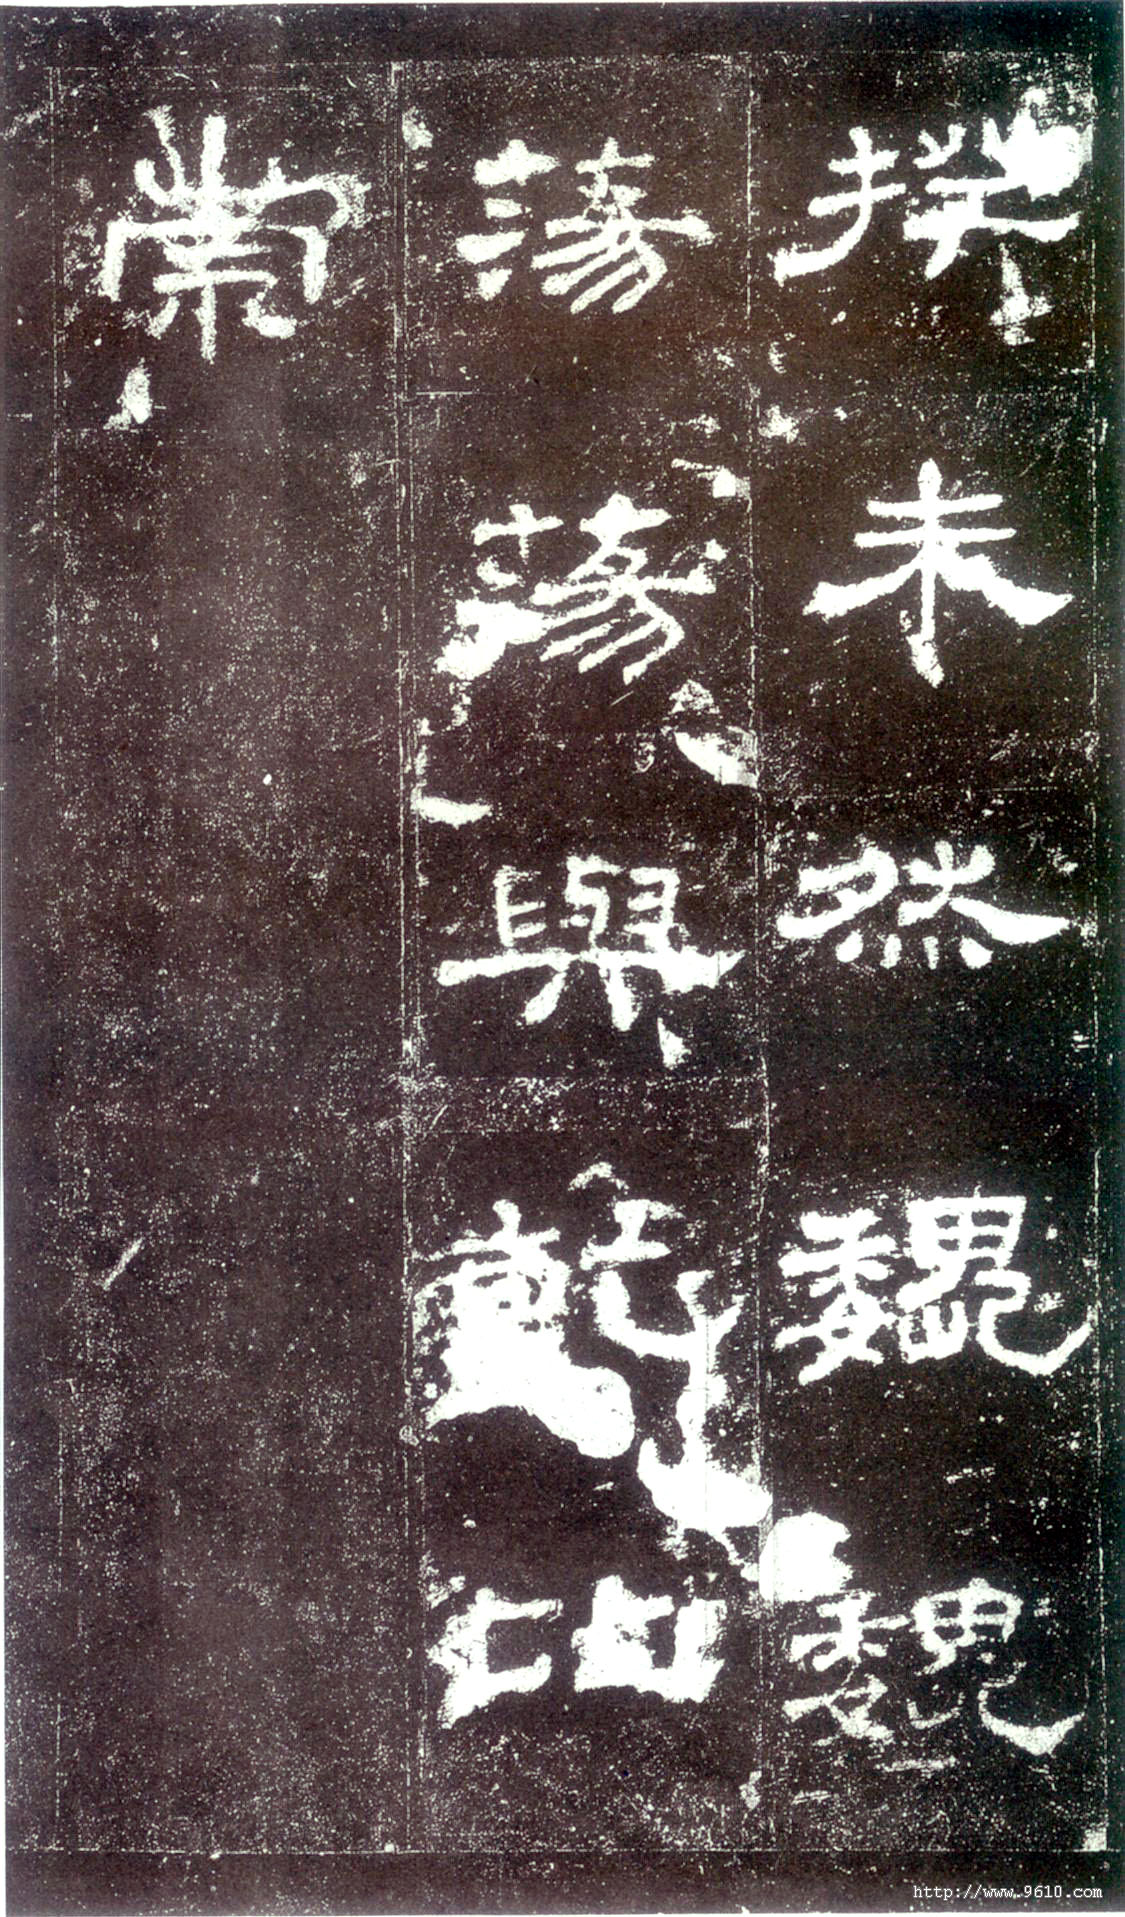 揆未然巍巍
蕩蕩與乾比
崇
http://www.9610.com